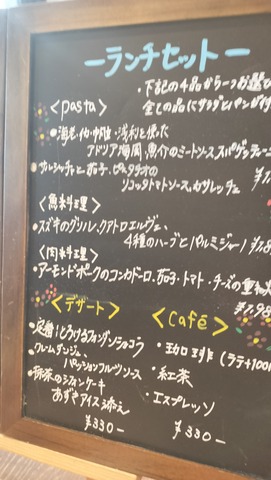 ーランチセットー
・下記の4品から一つお選び
全ての品にサラダとパンが付
<pasta>
・海老・帆立・浅利を使った
アドリア海風、魚介のミートソース、スパゲッティーニ
・サルシッチャと茄子、ピスタチオの
リコッタトマトソース、カサレッチェ
<魚料理>
・スズキのグリル、クアトロエルヴェ、
4種のハーブとパルミジャーノ
<肉料理>
・アーモンドポークのコンカドーロ、茄子・トマト・チーズの重ね
<デザート>
・定番:とろけるフォンダンショコラ
・クレムダンジュ、
パッションフルーツソース
・抹茶のシフォンケーキ
あずきアイス添え
¥330-
<Café>
・珈琲(ラテ+100
・紅茶
・エスプレッソ
¥330-